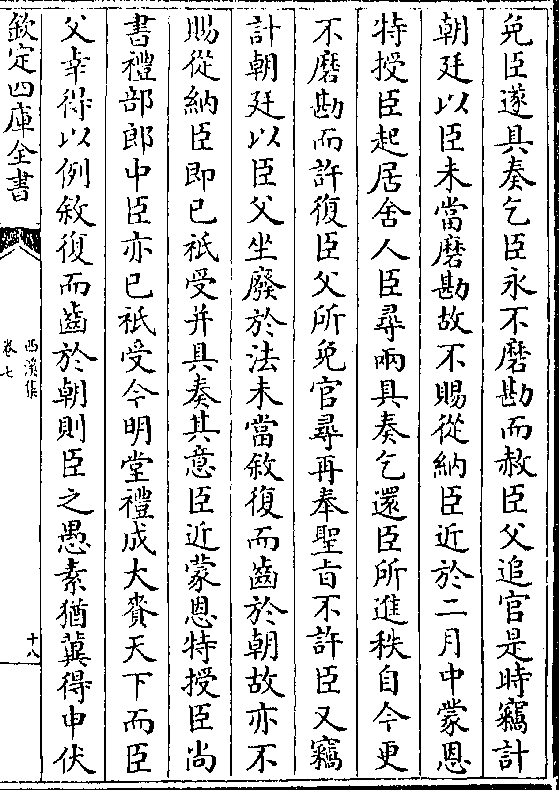 免臣遂具奏乞臣永不磨勘而赦臣父追官是時竊計
朝廷以臣未當磨勘故不賜從納臣近於二月中蒙恩
特授臣起居舍人臣尋兩具奏乞還臣所進秩自今更
不磨勘而許復臣父所免官尋再奉聖㫖不許臣又竊
計朝廷以臣父坐廢於法未當敘復而齒於朝故亦不
賜從納臣即已祗受并具奏其意臣近蒙恩特授臣尚
書禮部郎中臣亦已祗受今明堂禮成大賚天下而臣
父幸得以例敘復而齒於朝則臣之愚素猶冀得申伏
欽定四庫全書
西溪集
卷七
十八